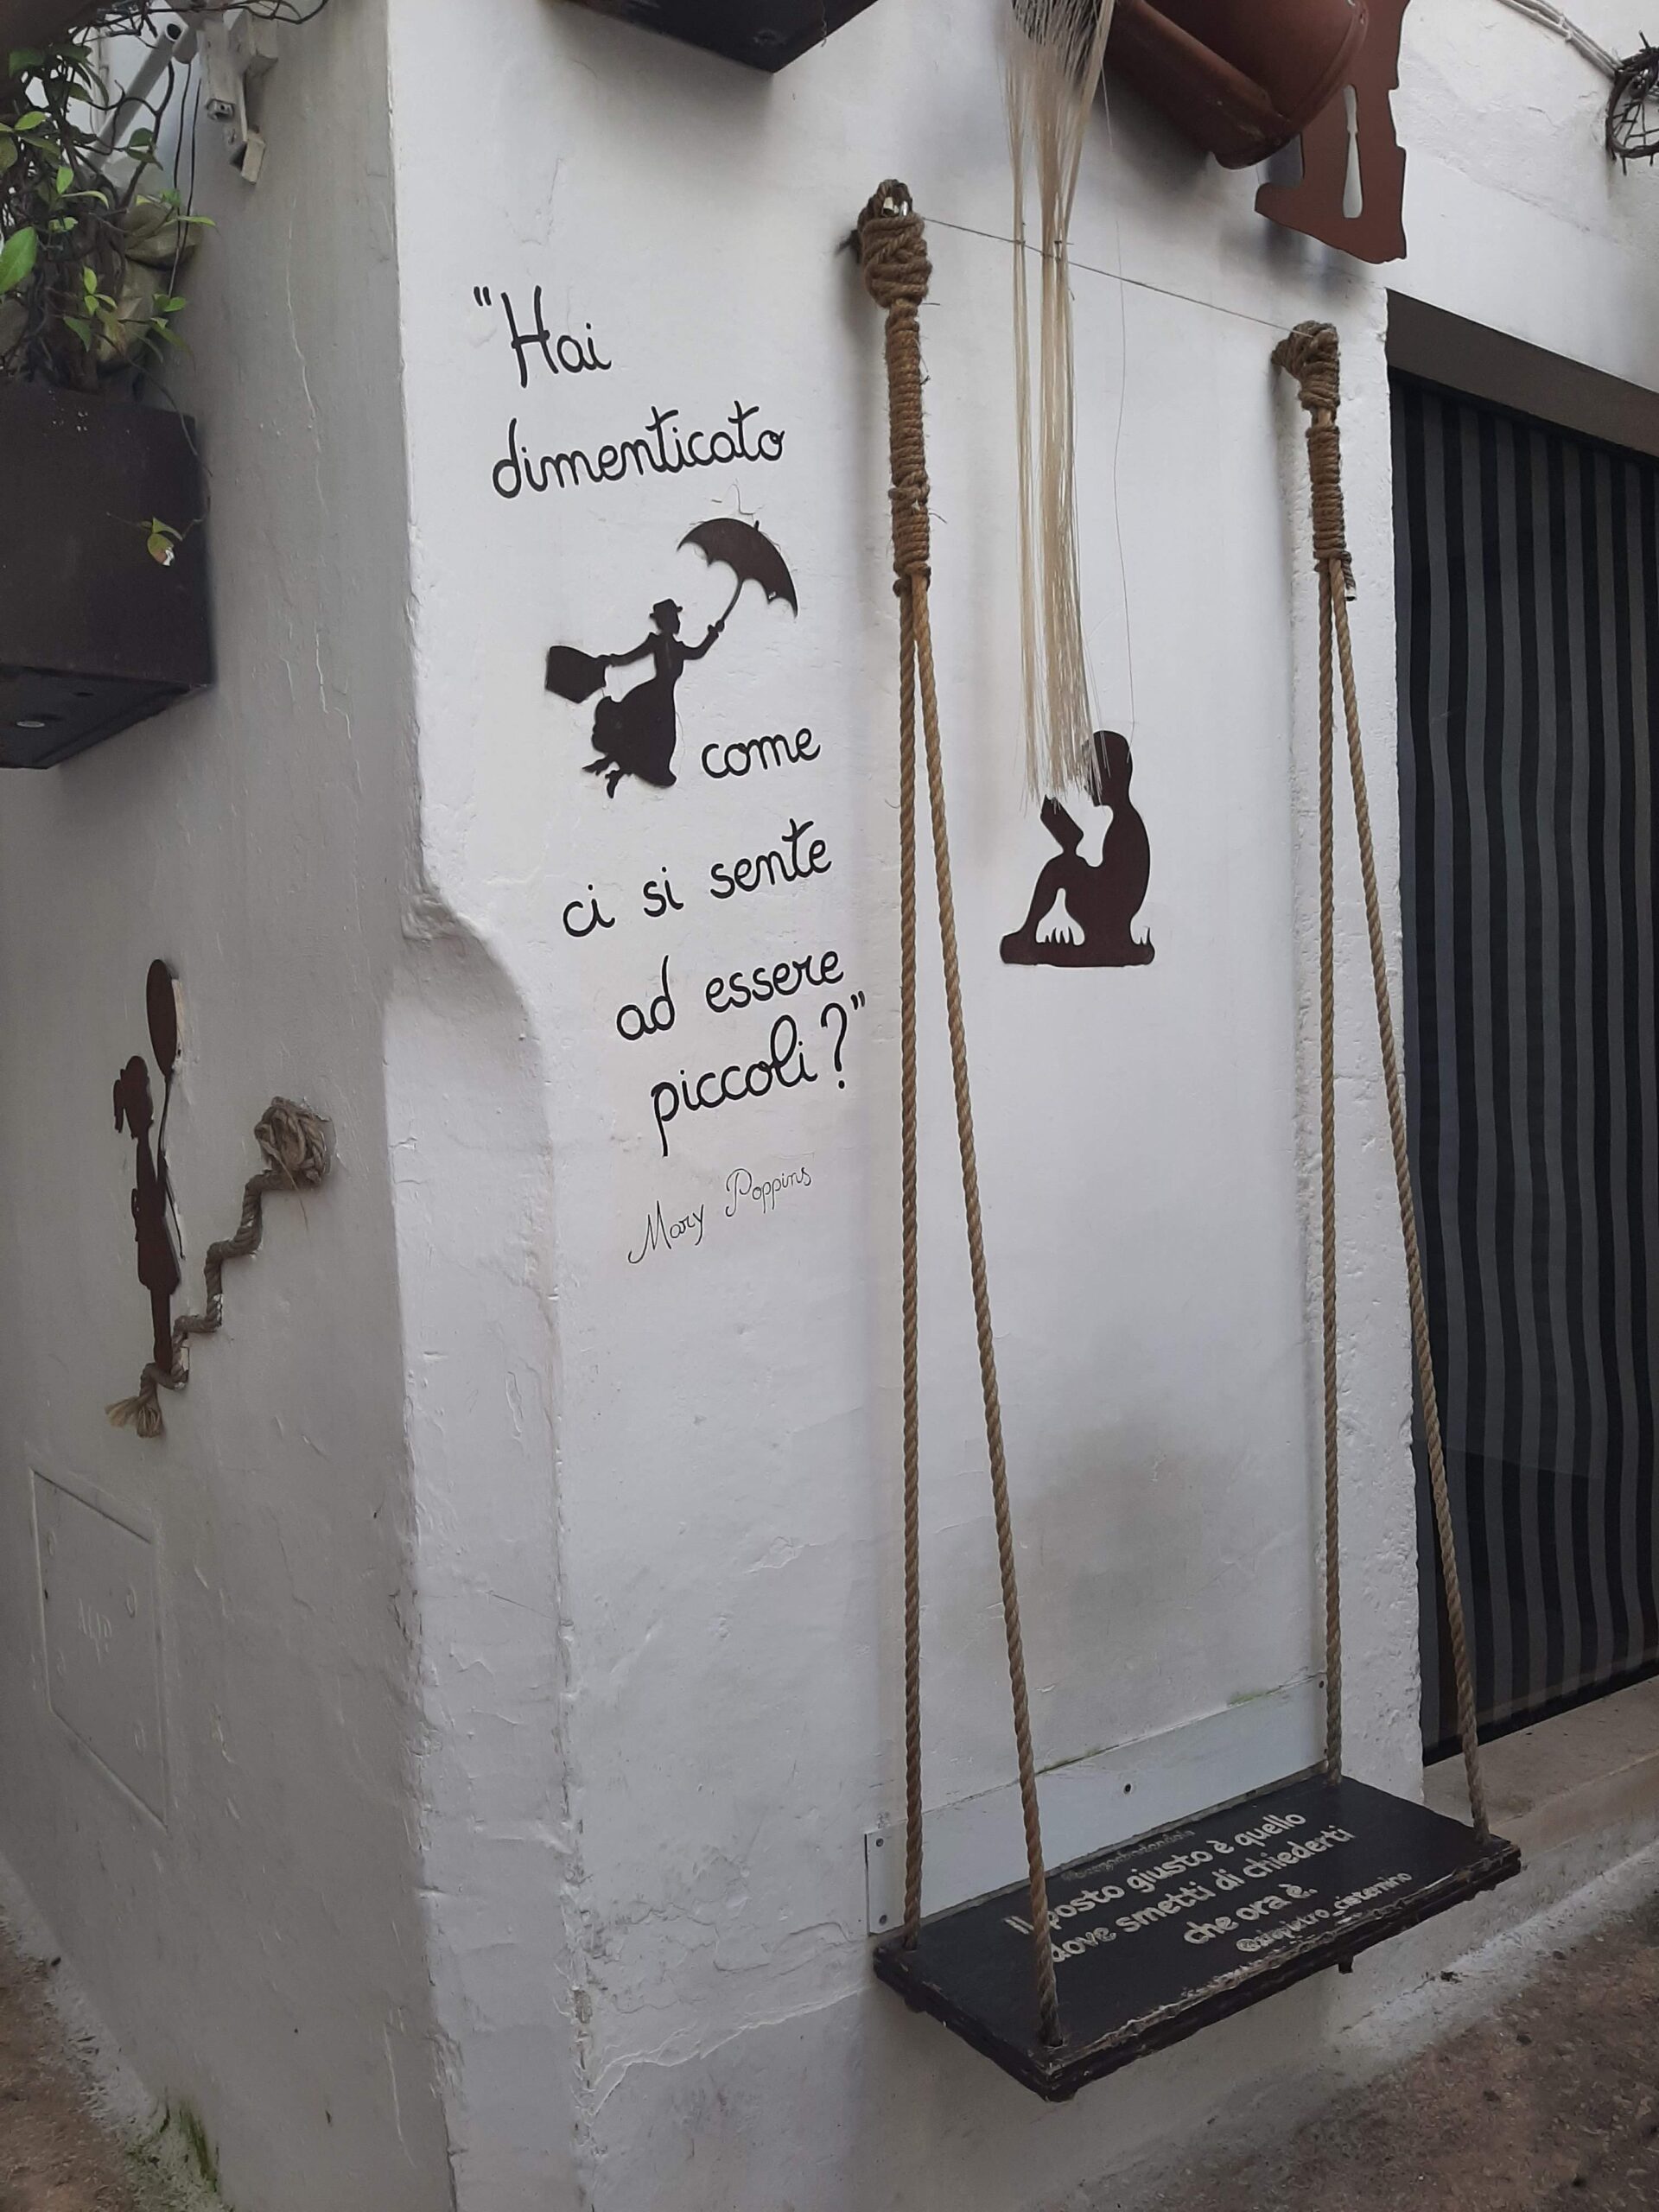 "Hai
dimenticato
come
ci si sente
ad essere
piccoli?"
Mary Poppins
Il posto giusto è quello
dove smetti di chiederti
che ora è.